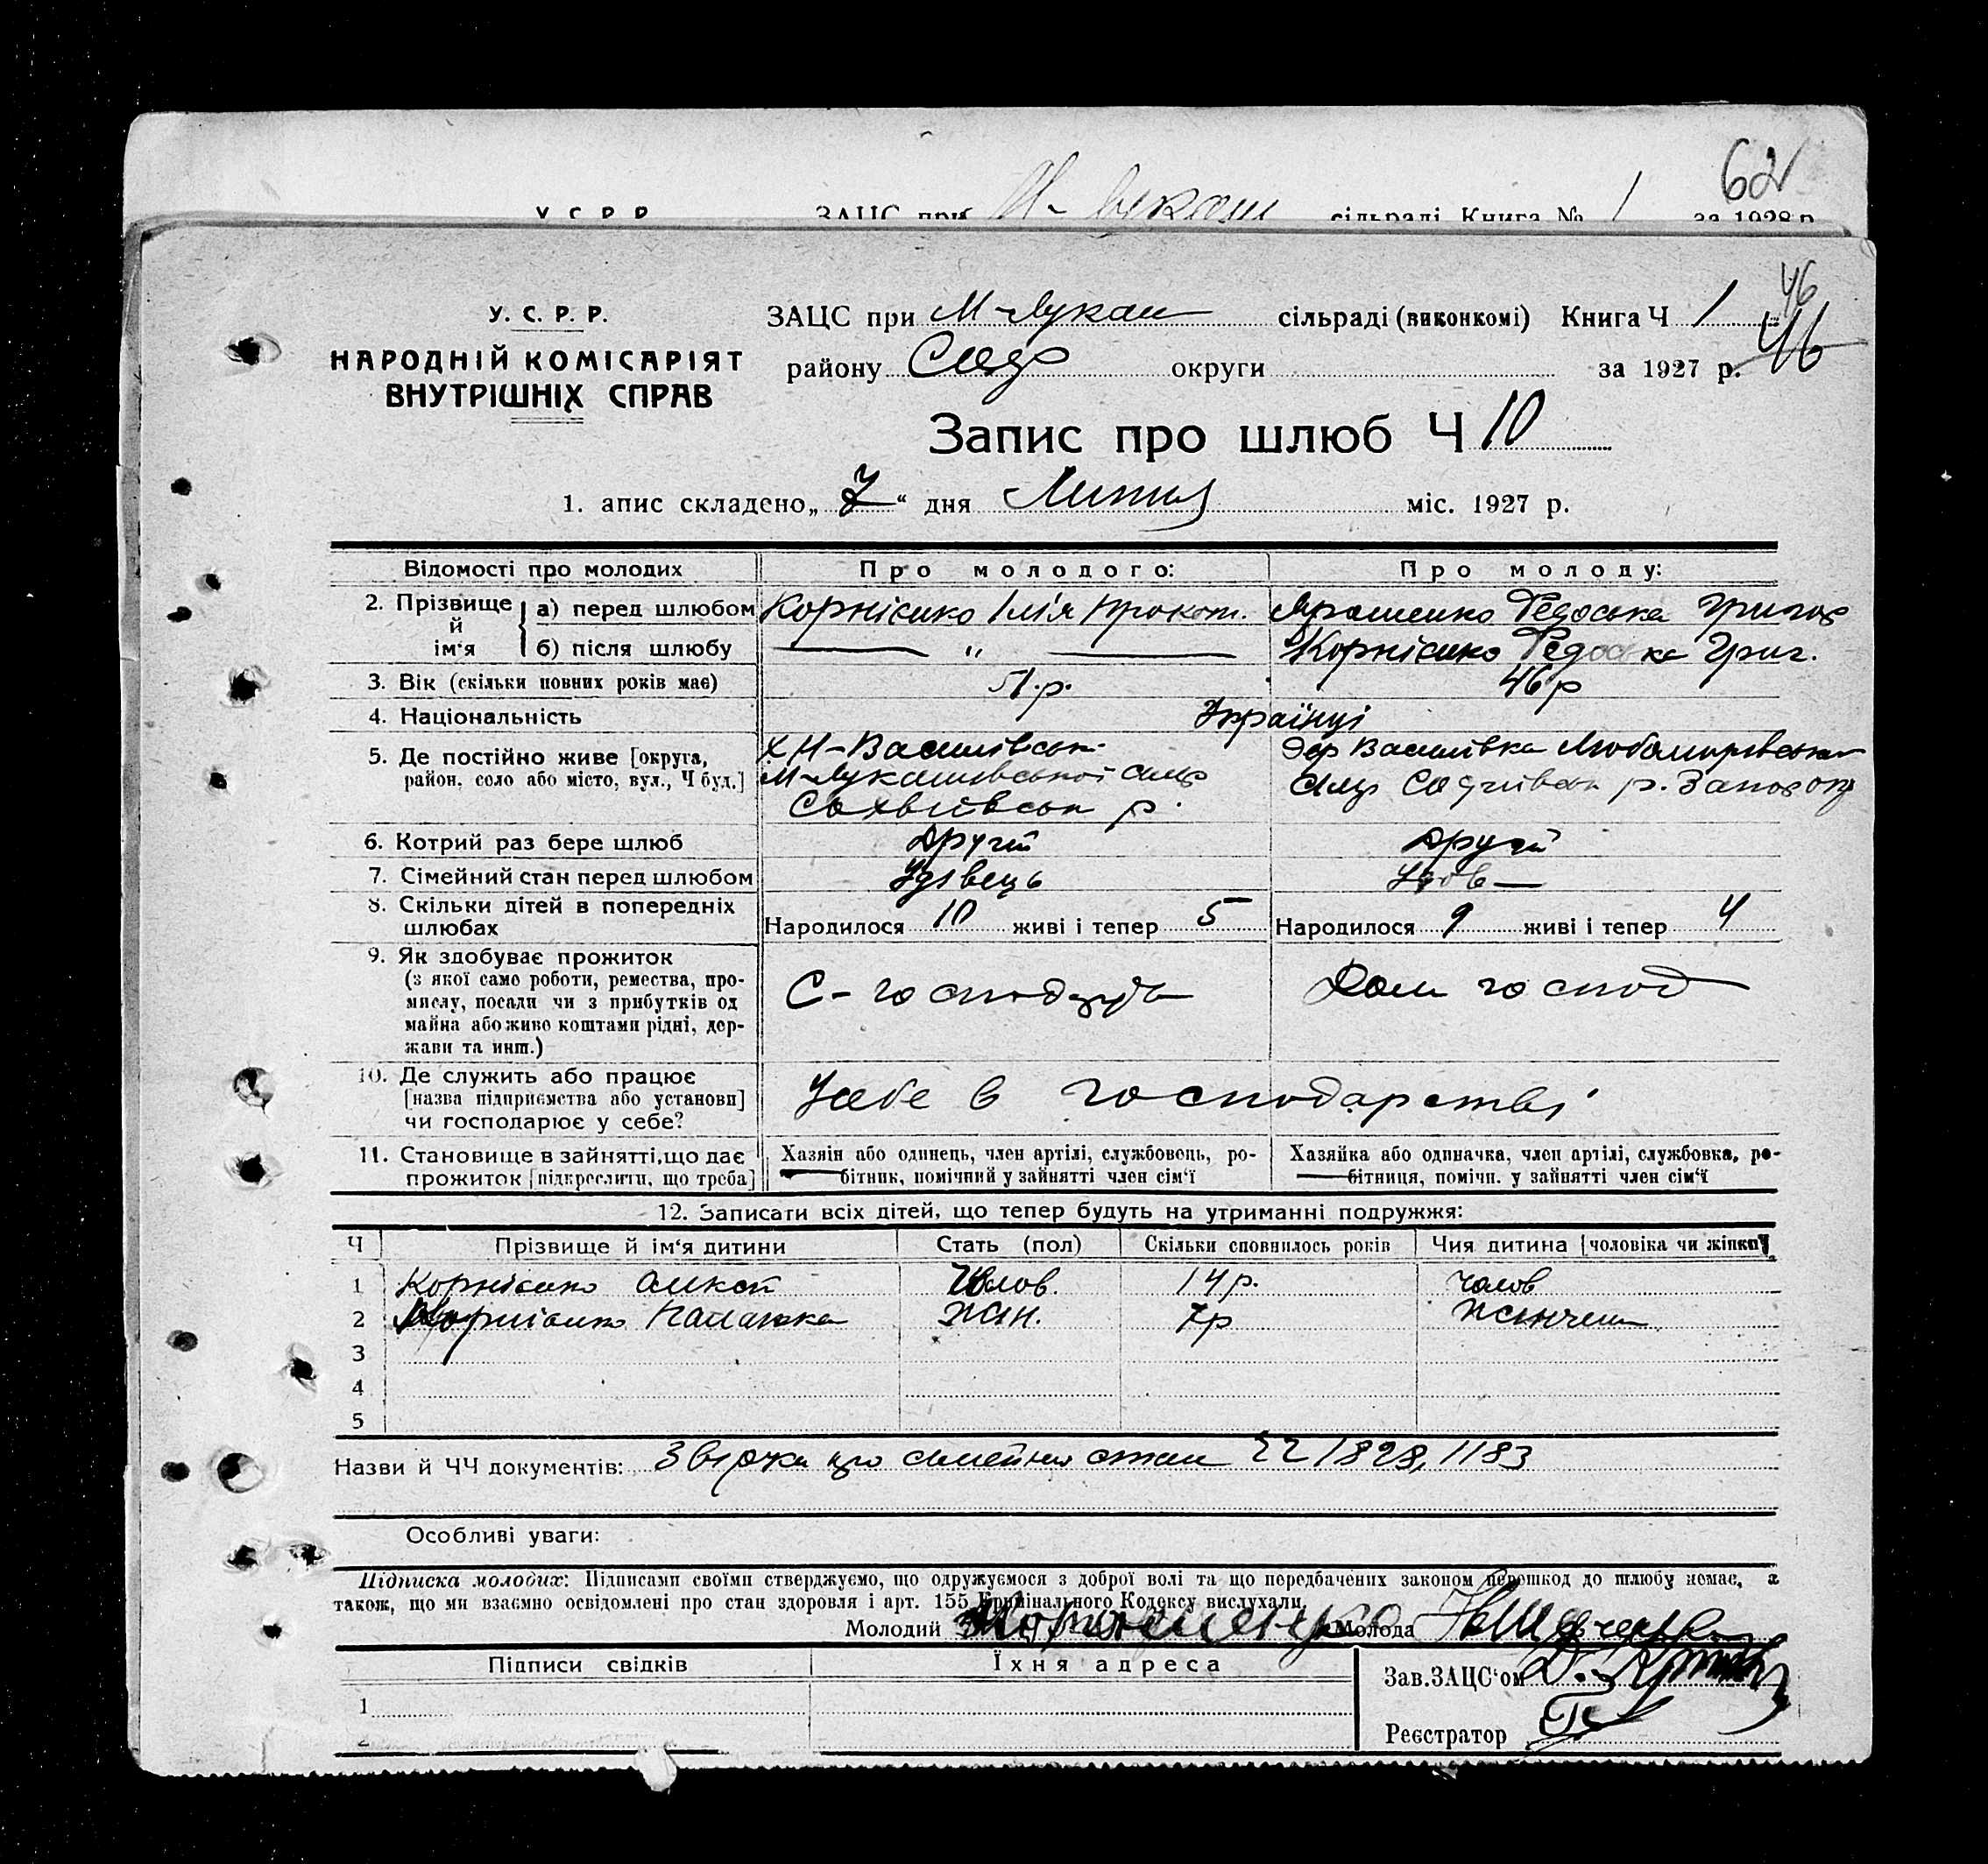 62
У. С. Р. Р. ЗАЦС при М-Лукаш сільраді Книга № 1 за 1928 р.
46
У. С. Р. Р. ЗАЦС при М-Лукаш сільраді (виконкомі) Книга Ч 1 46
НАРОДНІЙ КОМІСАРІЯТ району округи за 1927 р.
ВНУТРІШНІХ СПРАВ
Запис про шлюб Ч 10
1. апис складено „ 7 “ дня Липня міс. 1927 р.
Відомості про молодих Про молодого: Про молоду:
2. Прізвище й ім‘я а) перед шлюбом Корнієнко Ілія Прокоп. Ярошенко Федоська Григор
б) після шлюбу — „ — Корнієнко Федоська Григ.
3. Вік (скільки повних років має) 51 р. 46 р
4. Національність Українці
5. Де постійно живе [округа, Х Н-Василівськ Василівка Любомирівська
район, село або місто, вул., Ч буд.] М-Лукашівської с. р. Запор окр
Сохвіївськ р.
6. Котрий раз бере шлюб Другій Другій
7. Сімейний стан перед шлюбом Удівець Удов—
8. Скільки дітей в попередніх
шлюбах Народилося 10 живі і тепер 5 Народилося 9 живі і тепер 4
9. Як здобуває прожиток
(з якої само роботи, ремества, про-
мислу, посади чи з прибутків од С-господарь Дом господ
майна або живе коштами рідні, дер-
жави та инш.)
10. Де служить або працює
[назва підприємства або установи] Усебе в господарстві
чи господарює у себе?
11. Становище в зайнятті, що дає Хазяін або одинець, член артілі, службовець, ро- Хазяйка або одиначка, член артілі, службовка, ро-
прожиток [підкреслити, що треба] бітник, помічний у зайнятті член сім‘ї бітниця, помічн. у зайнятті член сім‘ї
12. Записати всіх дітей, що тепер будуть на утриманні подружжя:
Ч Прізвище й ім‘я дитини Стать (пол) Скільки сповнилось років Чия дитина [чоловіка чи жінки]
1 Корнієнко Олекс Чолов. 14 р. чолов
2 Корнієнко Палажка жін. 7 р
3
4
5
Назви й ЧЧ документів: про сімейний стан 1828, 1183
Особливі уваги:
Підписка молодих: Підписами своїми стверджуємо, що одружуємося з доброї волі та що передбачених законом перешкод до шлюбу немає, а
також, що ми взаємно освідомлені про стан здоровля і арт. 155 Кримінального Кодексу вислухали.
Молодий Молода
Підписи свідків Їхня адреса Зав. ЗАЦС‘ом
1
2 Реєстратор